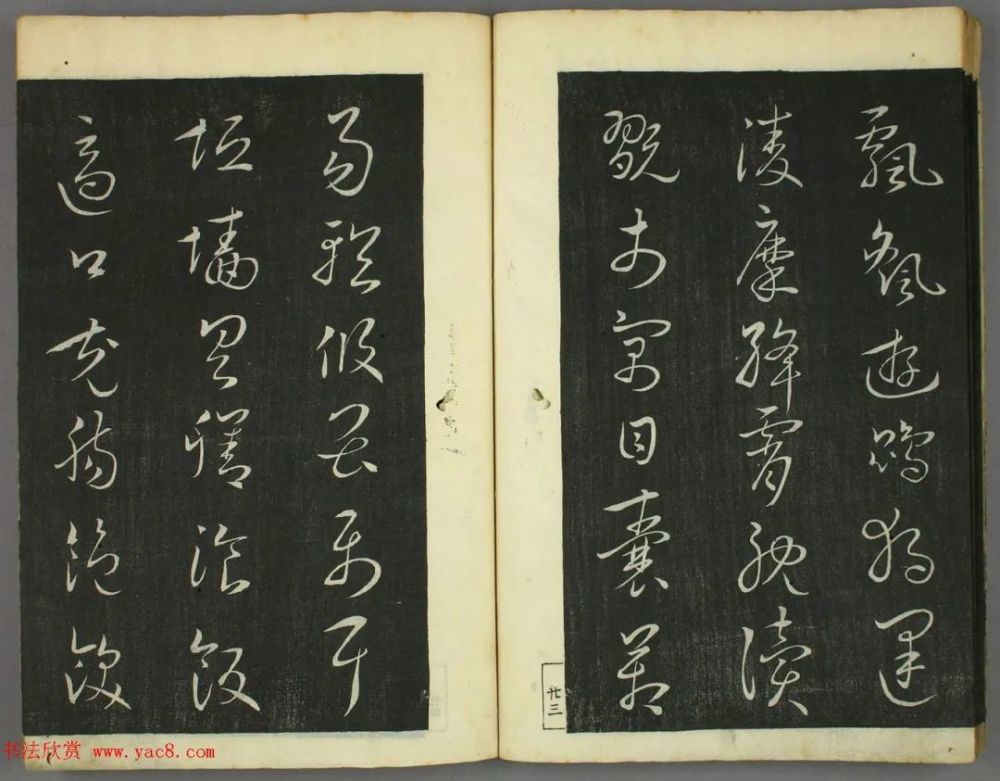 飄颻遊鵾獨運
淩摩絳霄耽讀
翫市寓目囊箱
廿三
易輶攸畏屬耳
垣墻具膳飡飯
適口充腸飽飫
书法欣赏 www.yac8.com